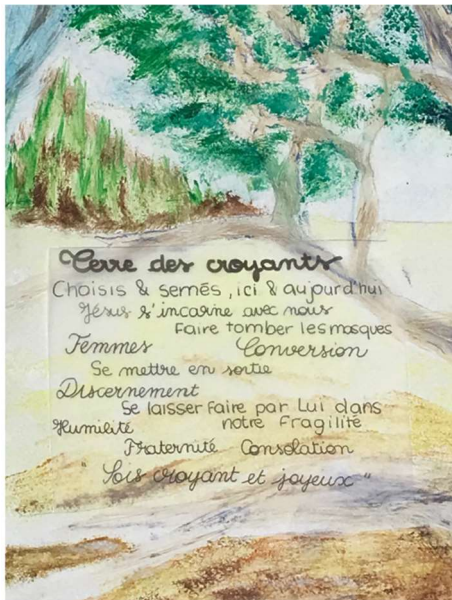 Terre des croyants
Choisis & semés, ici & aujourd'hui
Jésus s'incarne avec nous
Faire tomber les masques
Femmes Conversion
Se mettre en sortie
Discernement
Se laisser faire par Lui dans
Humilité notre fragilité
Fraternité Consolation
"Sois croyant et joyeux"